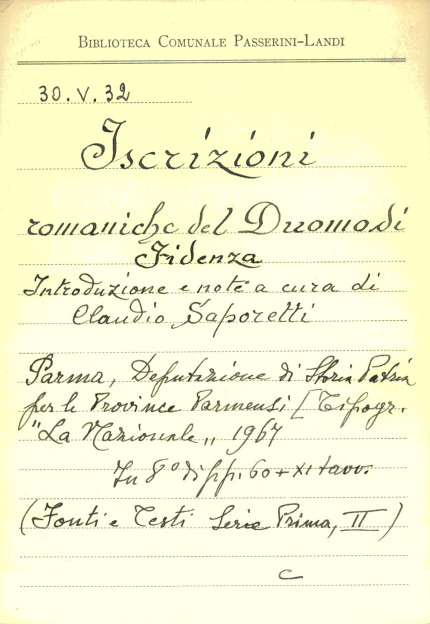 BIBLIOTECA COMUNALE PASSERINI-LANDI
30.V.32
Iscrizioni
romaniche del Duomo di
Fidenza
Introduzione e note a cura di
Claudio Saporetti
Parma, Deputazione di Storia Patria
per le Province Parmensi [Tipogr.
"La Nazionale„ 1967
In 8° di pp. 60 + XI tavv.
(Fonti e Testi Serie Prima, II)
C